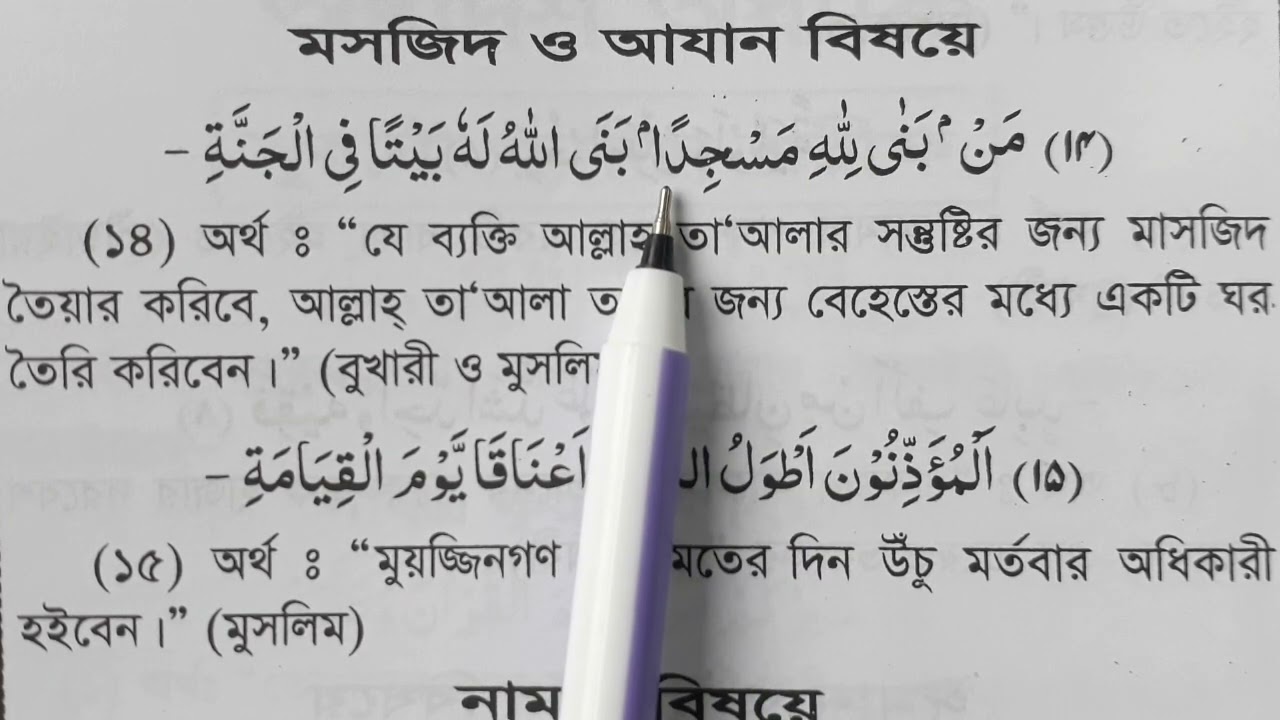 মসজিদ ও আযান বিষয়ে
(١٤) مَنْ ۢ بَنٰى لِلّٰهِ مَسْجِدًا ۢ بَنَى اللهُ لَهٗ بَيْتًا فِى الْجَنَّةِ –
(১৪) অর্থ ঃ “যে ব্যক্তি আল্লাহ্ তা‘আলার সন্তুষ্টির জন্য মাসজিদ
তৈয়ার করিবে, আল্লাহ্ তা‘আলা জন্য বেহেস্তের মধ্যে একটি ঘর
তৈরি করিবেন।” (বুখারী ও
(١٥) اَلْمُؤَذِّنُوْنَ اَطْوَلُ اَعْنَاقًا يَّوْمَ الْقِيَامَةِ –
(১৫) অর্থ ঃ “মুয়জ্জিনগণ দিন উঁচু মর্তবার অধিকারী
হইবেন।” (মুসলিম)
বিষয়ে